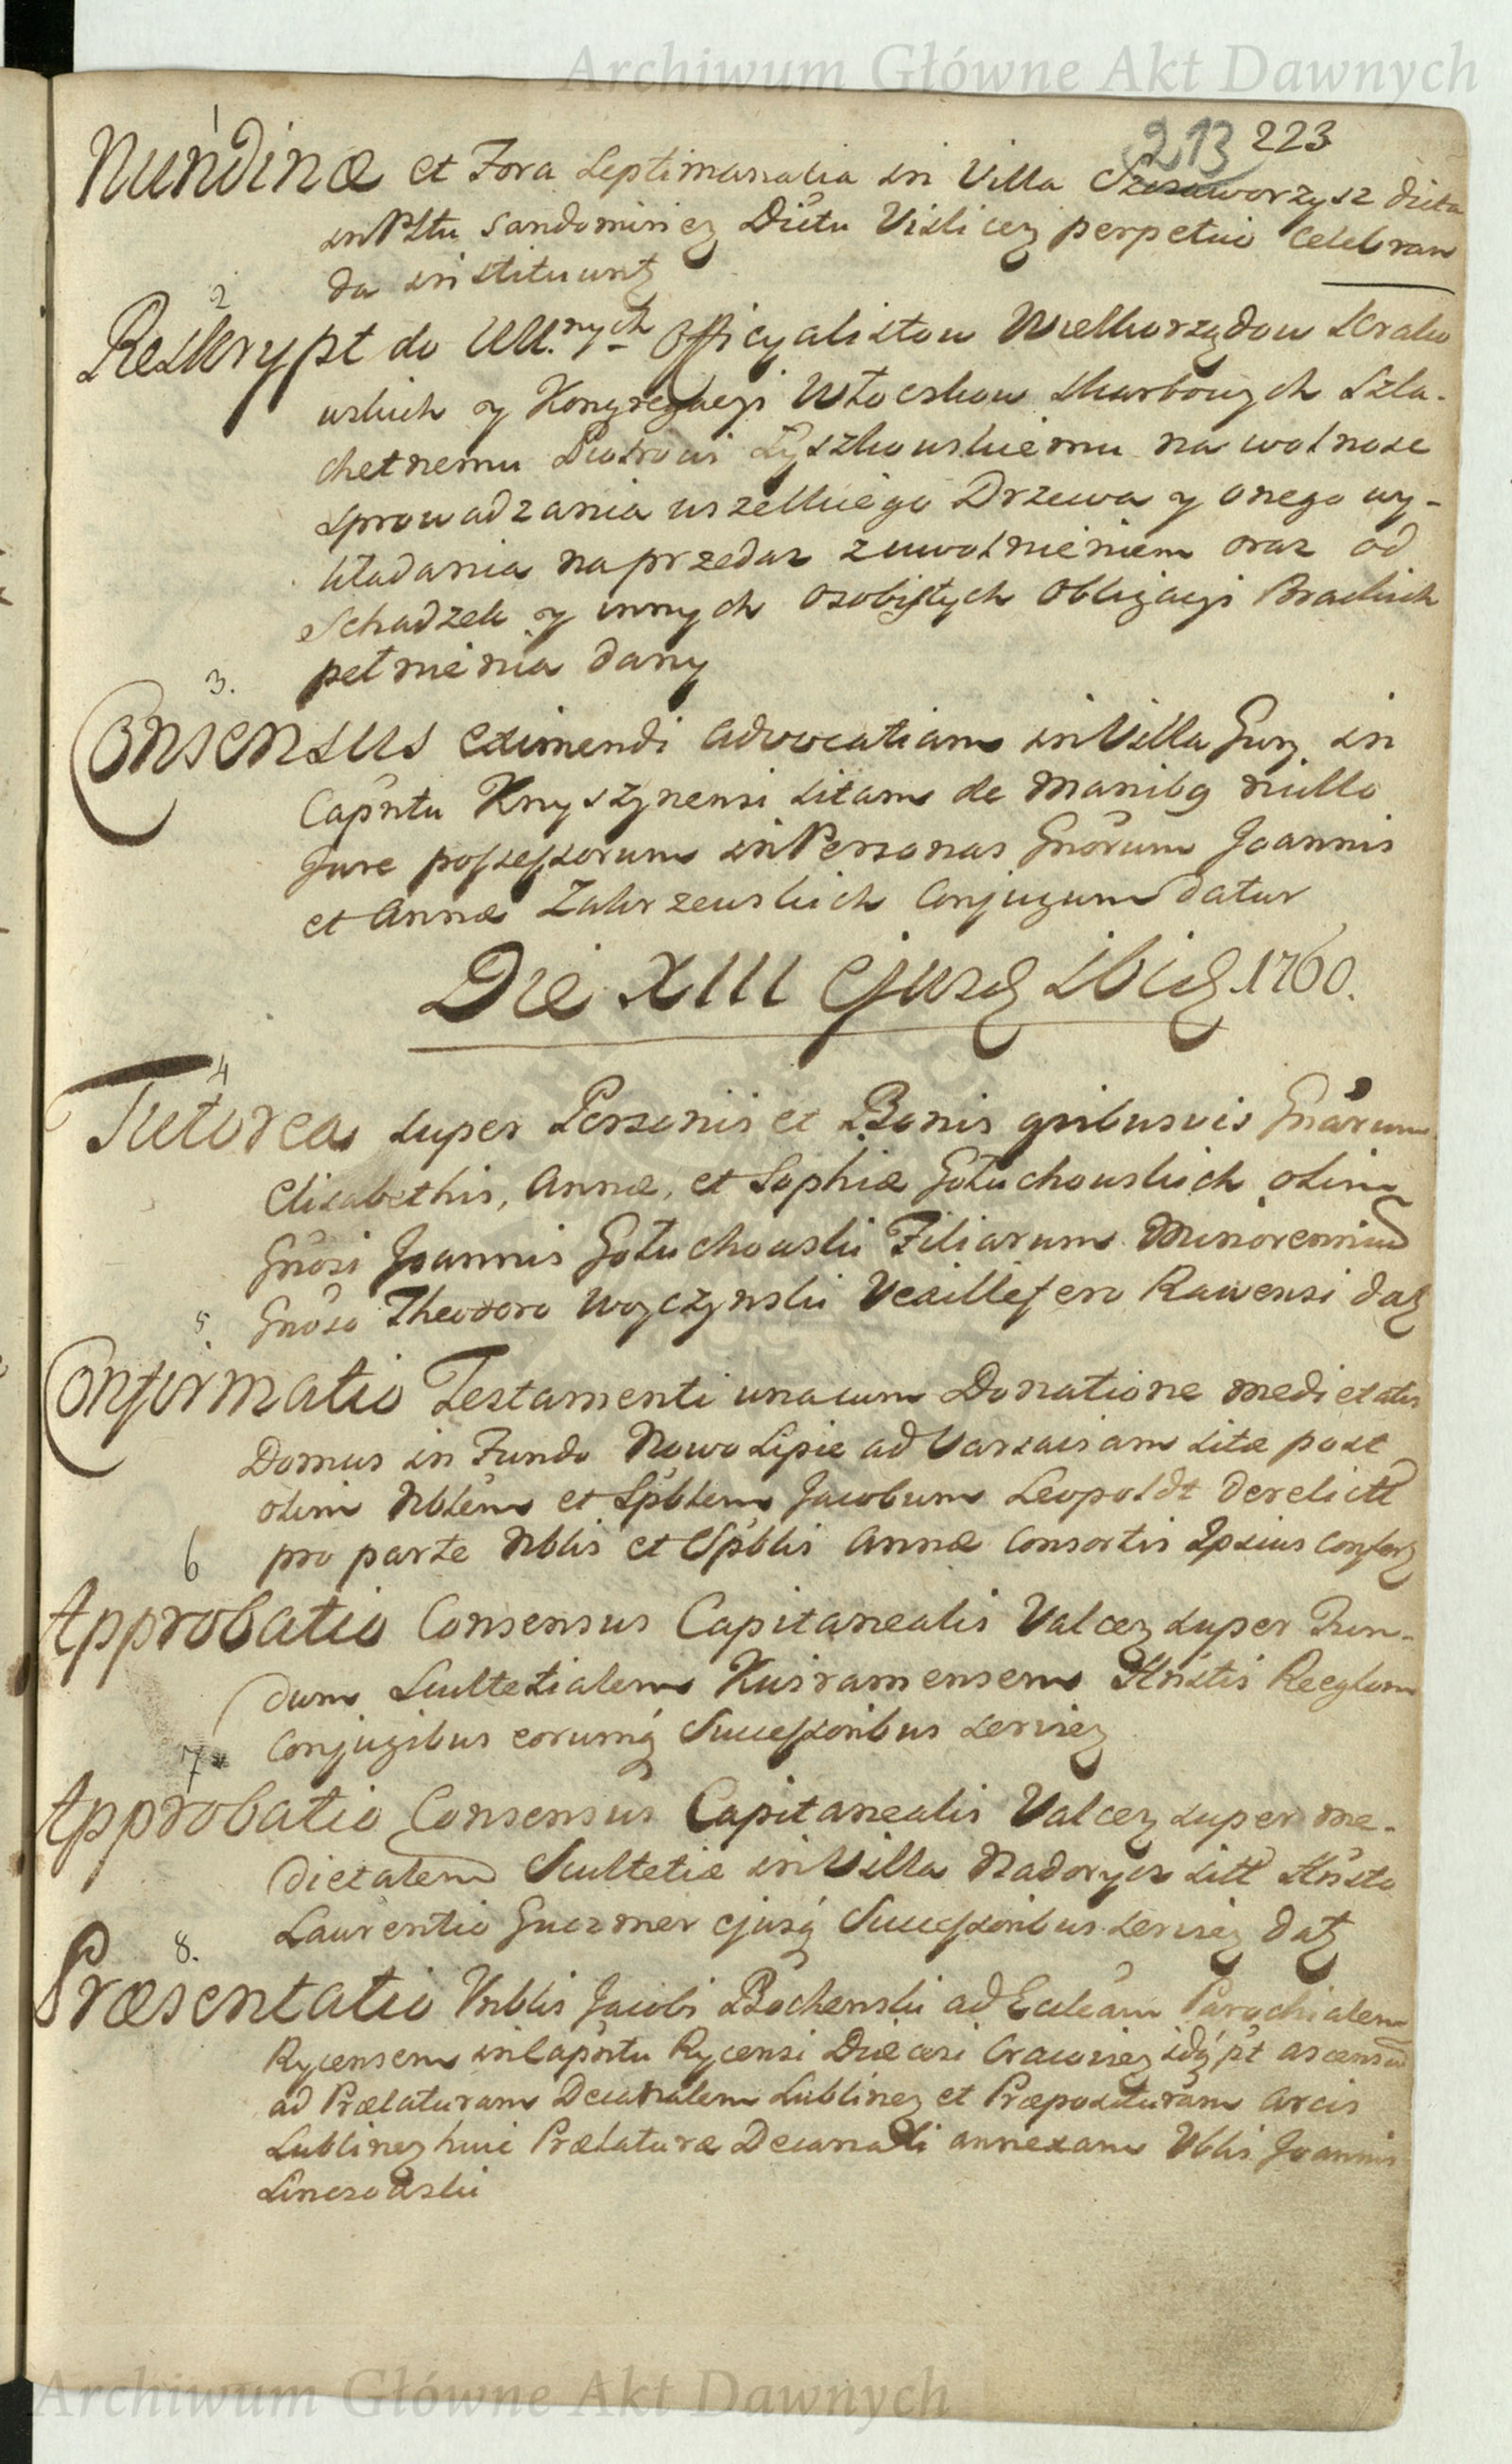 Archiwum Główne Akt Dawnych
213 223
1
Nundinæ et Fora Septimanalia in Villa dicta
in Pltu Sandomirien Dictu Vislicen perpetuo celebran
da instituunt
2
Reskrypt do UU.nych Officyalistow Wielkorządow Krako
wskich y Kongregacyi Włoczkow skarbowych Szla-
chetnemu Piotrowi Łyszkowskiemu na wolnosc
sprowadzania wszelkiego Drzewa y onego wy-
kładania na przedaz z uwolnieniem oraz od
Schadzek y innych osobistych Obligacyi Brackich
pełnienia dany
3.
Consensus eximendi Advocatiam in Villa Gury in
Capntu Knyszynensi sitam de Manibq nullo
Jure possessorum in Personas Gnorum Joannis
et Annæ Zakrzewskich Conjugum datur
Die XIII ejusd ibid 1760.
4
Tutorea super Personis et Bonis quibusvis Gnarum
Elisabethis, Annæ, et Sophiæ Gołuchowskich olim
Gnosi Joannis Gołuchowski Filiarum Minorennium
5.
Gnoso Theodoro Woyczynski Vexillifero Rawensi dat
Confirmatio Testamenti unacum Donatione medietatis
Domus in Fundo Nowolipie ad Varsaviam sitæ post
olim Nblem et Spblem Jacobum Leopoldt derelict
6
pro parte Nblis et Spblis Annæ Consortis Ipsius confert
Approbatio Consensus Capitanealis Valcen super Fun-
dum Scultetialem Hnstis
7
Conjugibus eorumq Successoribus servien
Approbatio Consensus Capitanealis Valcen super me-
dietatem Scultetiæ in Villa Nadorycz sitt Hnsto
Laurentio Guczmer ejusq Successoribus servien dat
8.
Præsentatio Vnblis Jacobi Bochenski ad Eccleam Parochialem
Rycensem in Capntu Rycensi Diæcesi Cracovien idq pt ascensum
ad Prælaturam Decanalem Lublinen et Præposituram Arcis
Lublinen huic Prælaturæ Decanali annexam Vblis Joannis
Lenczowski
Archiwum Główne Akt Dawnych